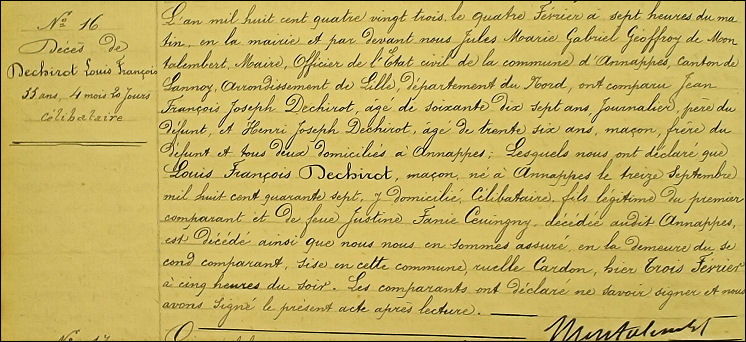 No 16
Décès de
Dechirot Louis François
35 ans, 4 mois 20 Jours
Célibataire
L'an mil huit cent quatre vingt trois, le quatre Février à sept heures du ma
tin, en la mairie et par devant nous Jules Marie Gabriel Geoffroy de Mon
talembert, Maire, Officier de l'Etat civil de la commune d'Annappes, canton de
Lannoy, Arrondissement de Lille, Département du Nord, ont comparu Jean
François Joseph Dechirot, agé de soixante dix sept ans Journalier, père du
défunt, et Henri Joseph Dechirot, agé de trente six ans, maçon, frère du
Défunt et tous deux domiciliés à Annappes; Lesquels nous ont déclaré que
Louis François Dechirot, maçon, né à Annappes le treize Septembre
mil huit cent quarante sept, y domicilié, Célibataire, fils légitime du premier
comparant et de feue Justine Fanie, décédée audit Annappes,
est décédé ainsi que nous nous en sommes assuré, en la demeure du se
cond comparant, sise en cette commune, ruelle Cardon, hier trois Février
à cinq heures du soir. Les comparants ont déclaré ne savoir signer et nous
avons signé le présent acte après lecture.
Montalembert
No 17